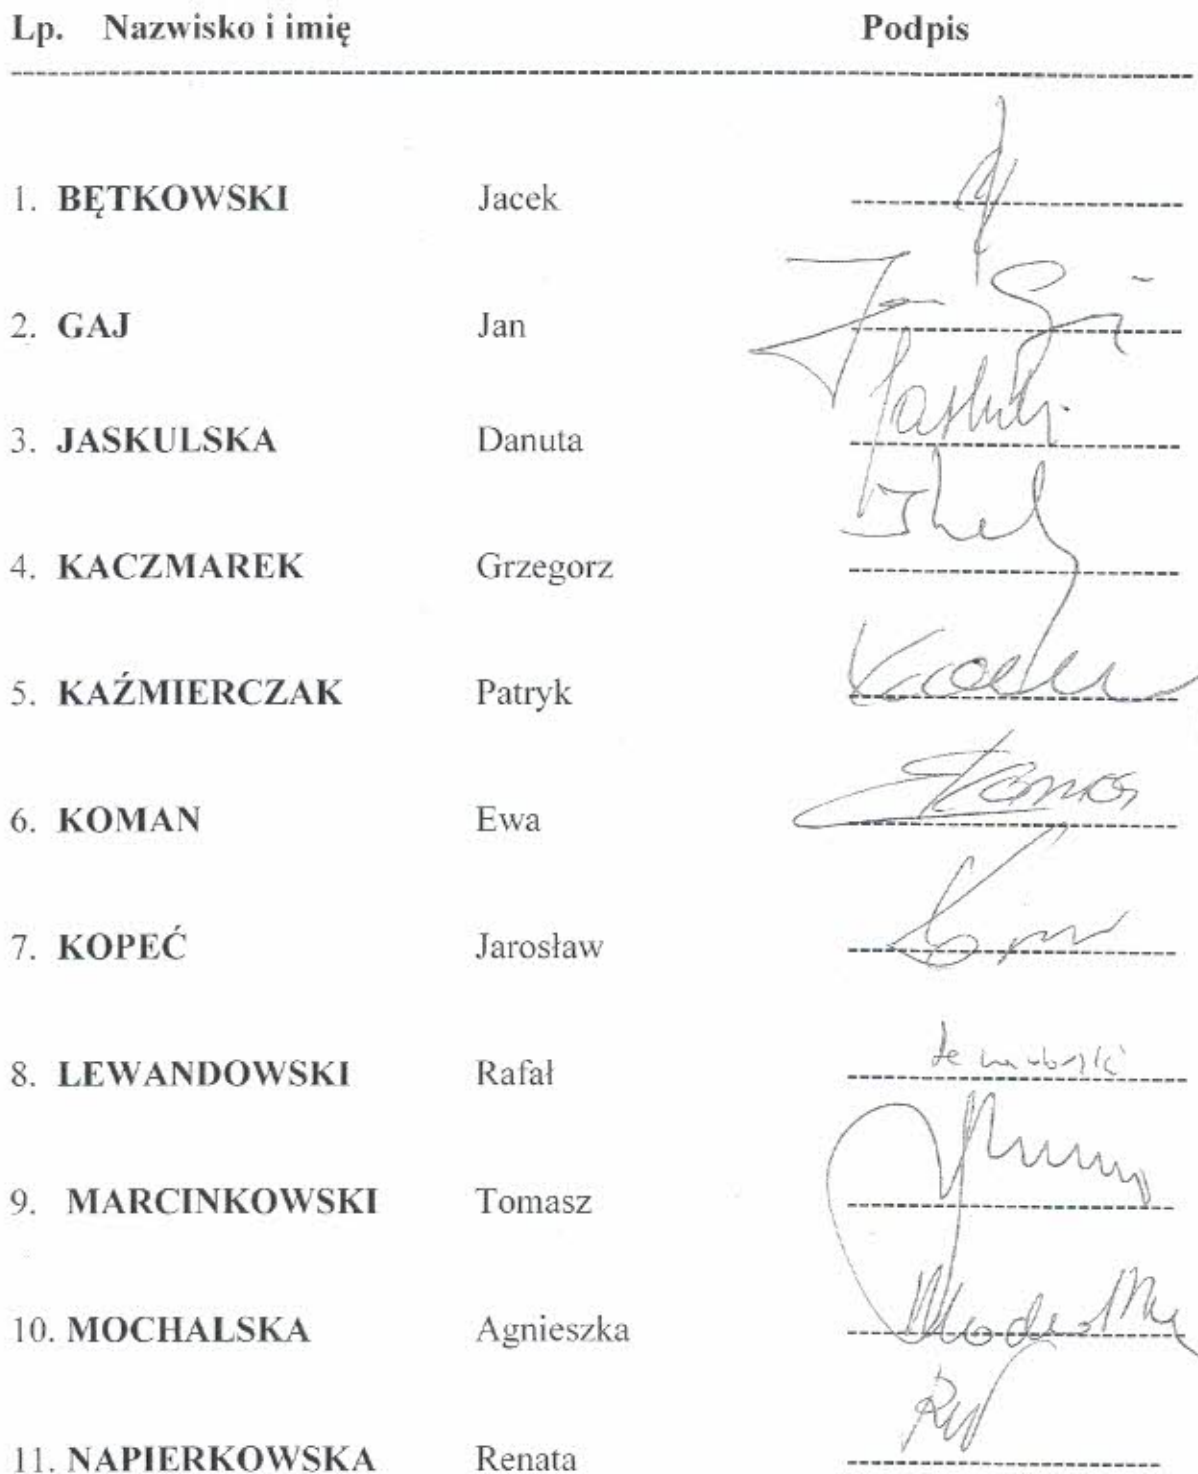 Lp. Nazwisko i imię Podpis
1. BĘTKOWSKI Jacek
2. GAJ Jan
3. JASKULSKA Danuta
4. KACZMAREK Grzegorz
5. KAŹMIERCZAK Patryk
6. KOMAN Ewa
7. KOPEĆ Jarosław
8. LEWANDOWSKI Rafał
9. MARCINKOWSKI Tomasz
10. MOCHALSKA Agnieszka
11. NAPIERKOWSKA Renata